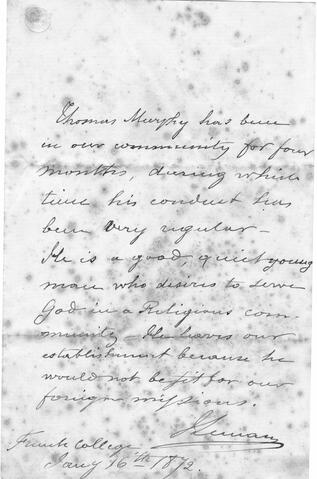 Thomas Murphy has been
in our community for four
months, during which
time his conduct has
been very regular –
He is a good quiet young
man who desires to serve
God in a Religious com-
munity – He leaves our
establishment because he
would not be fit for our
foreign missions.
French College
Jany 16th 1872.